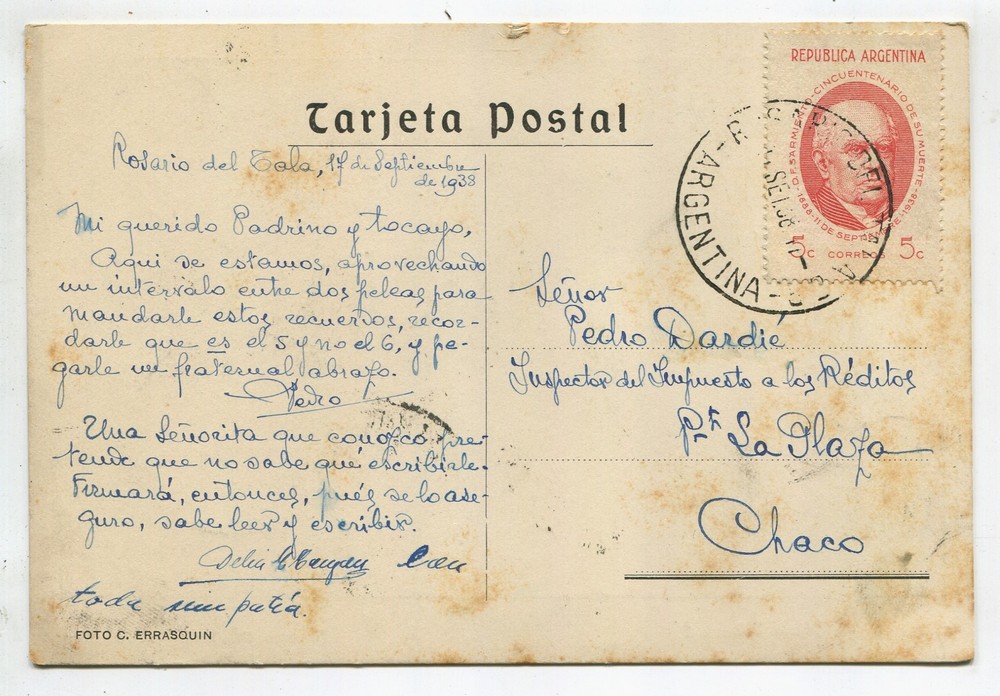 Tarjeta Postal
Rosario del Tala, 17 de Septiembre
de 1938
Mi querido Padrino y tocayo,
Aqui de estamos, aprovechando
un intervalo entre dos peleas para
mandarle estos recuerdos, recor-
darle que es el 5 y no el 6, y pe-
garle un fraternal abrazo.
Pedro
Una señorita que conozco pre-
tende que no sabe qué escribirle.
Firmará, entonces, pués se lo ase-
guro, sabe leer y escribir.
Con
toda simpatía.
FOTO C. ERRASQUIN
REPUBLICA ARGENTINA
D.F. SARMIENTO-CINCUENTENARIO DE SU MUERTE
1888-11 DE SEPTIEMBRE-1938
5c CORREOS 5c
ARGENTINA
Señor
Pedro Dardié
Inspector del Impuesto a los Réditos
Pte. La Plaza
Chaco